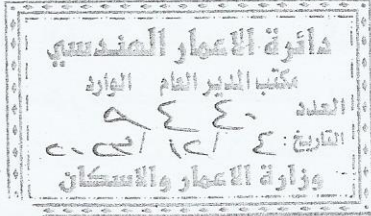 دائرة الاعمار الهندسي
مكتب المدير العام الوارد
العدد ٩٤٤٠
التاريخ: ٤ / ١٢ /
وزارة الاعمار والاسكان